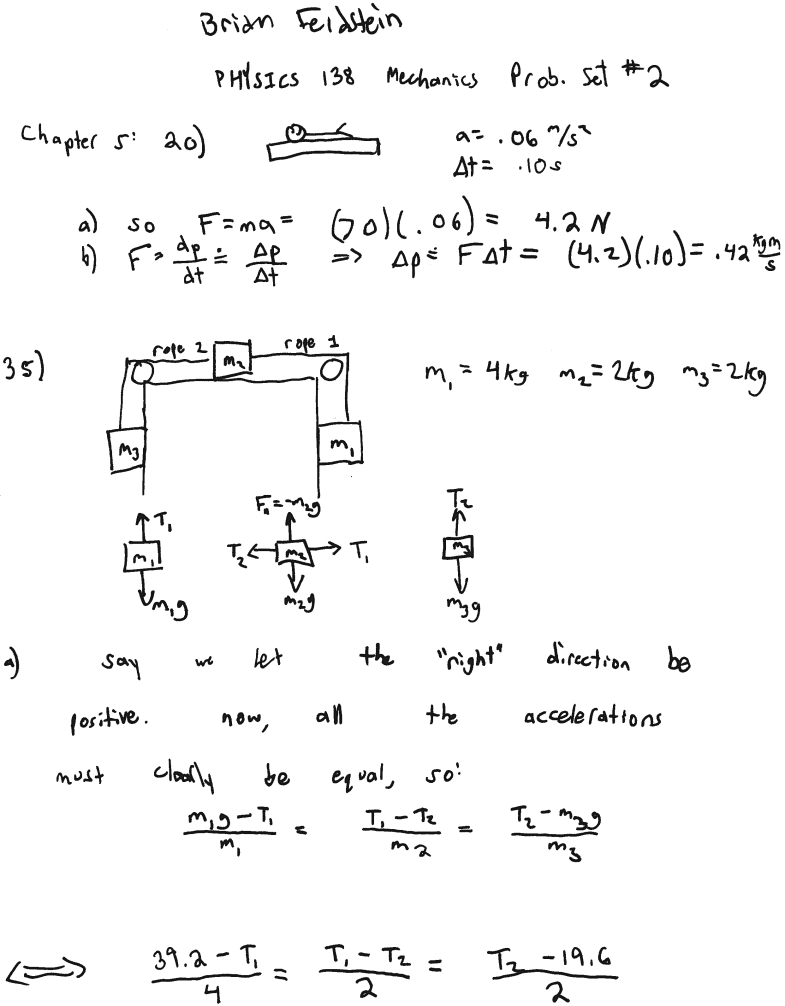 Brian Feldstein
PHYSICS 138 Mechanics Prob. Set #2
Chapter 5: 20)
a = .06 m/s²
Δt = .10s
a) so F = ma = (70)(.06) = 4.2 N
b) F = dp/dt ≐ Δp/Δt => Δp ≐ FΔt = (4.2)(.10) = .42 kgm/s
35)
rope 2 m₂ rope 1
m₁ = 4kg m₂ = 2kg m₃ = 2kg
m₃ m₁
T₁ Fₙ = -m₂g T₂
m₁ T₂ m₂ T₁ m₃
m₁g m₂g m₃g
a) say we let the "right" direction be
positive. now, all the accelerations
must clearly be equal, so:
(m₁g - T₁)/m₁ = (T₁ - T₂)/m₂ = (T₂ - m₃g)/m₃
⟺ (39.2 - T₁)/4 = (T₁ - T₂)/2 = (T₂ - 19.6)/2